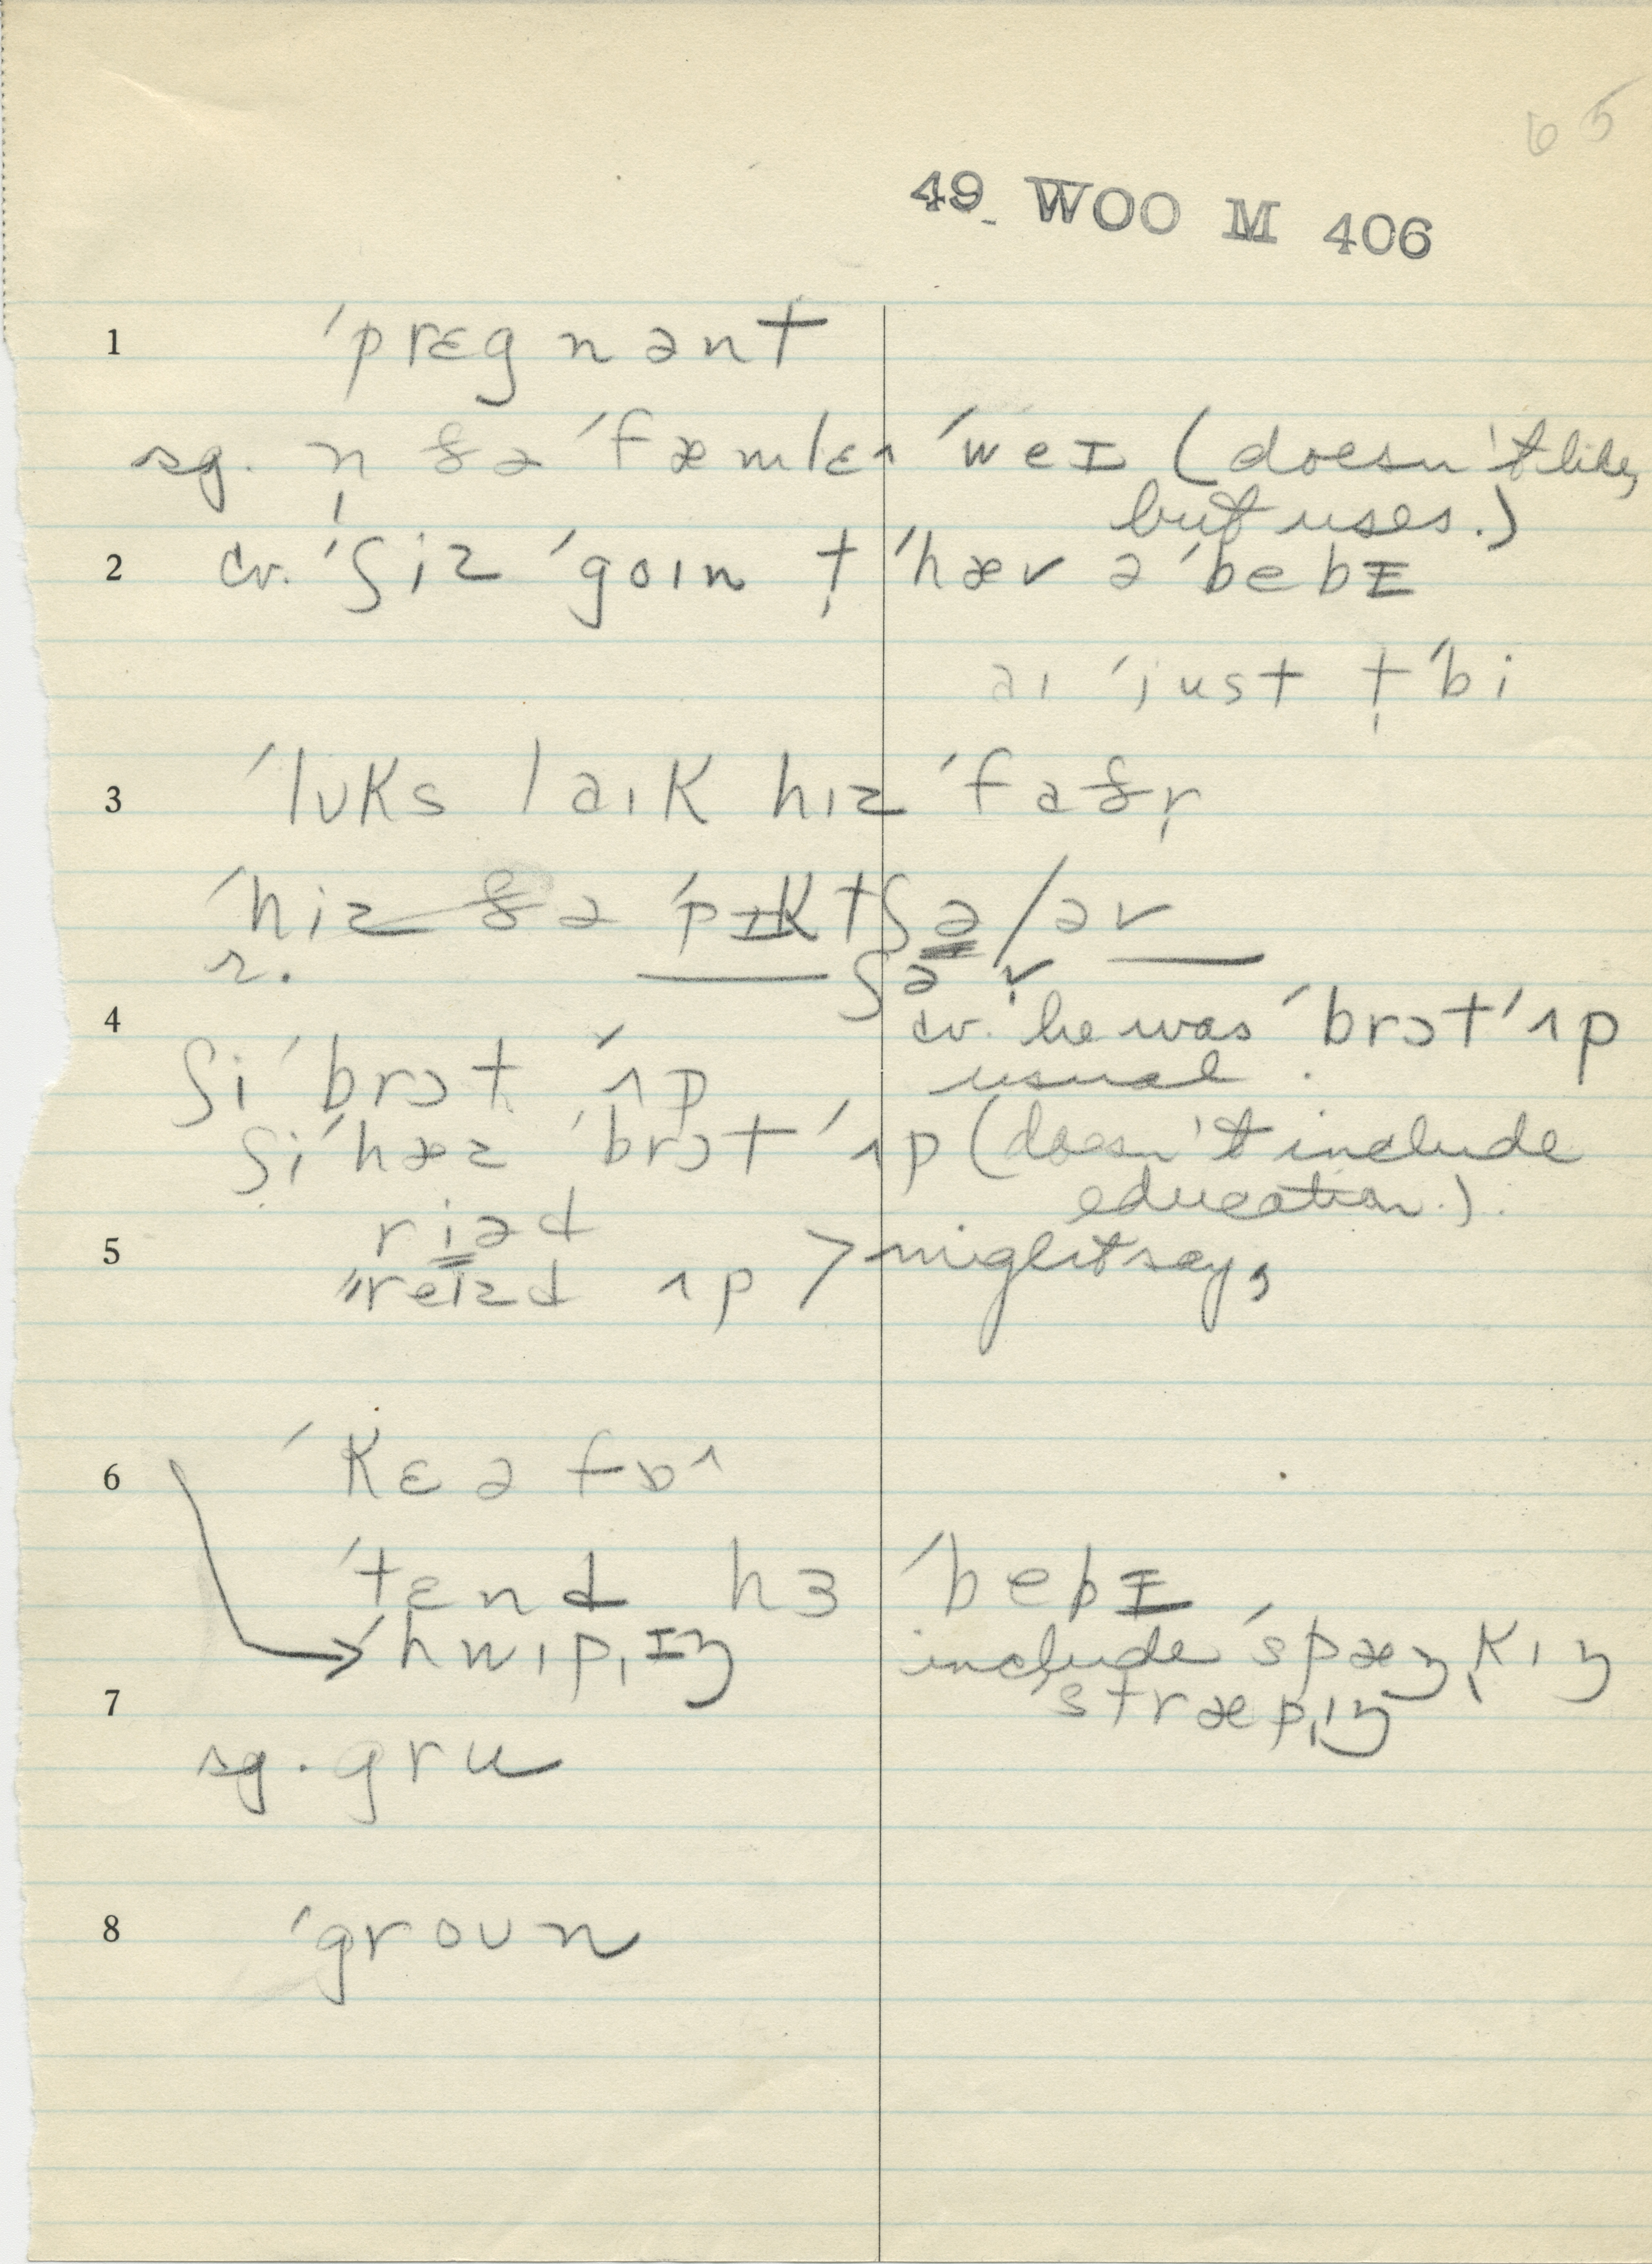 65
49 WOO M 406
1 ˈprɛgnənt
sg. n̩ ðə ˈfæmlɛ˄ ˈweɪ (doesn't like,
but uses.)
2 cv. ˈʃiz ˈgoɪn t̩ ˈhæv ə ˈbebɪ
aɪ ˈjust t̩ ˈbi
3 ˈlʊks laɪk hɪz ˈfaðr̩
ˈhiz ðə ˈpɪktʃə/əv
r. ʃə v̩
4 cv. he was ˈbrɔt ˈʌp
usual.
ʃi ˈbrɔt ˈʌp
ʃi ˈhæz ˈbrɔt ˈʌp (doesn't include
education.)
5 riəd
"reɪzd ʌp > might say,
6 ˈkɛə fɒ˄
ˈtɛnd hɜ ˈbebɪ
→ ˈhwɪpˌɪŋ include ˈspæŋˌkɪŋ
7 stræpˌɪŋ
sg. gru
8 ˈgroʊn